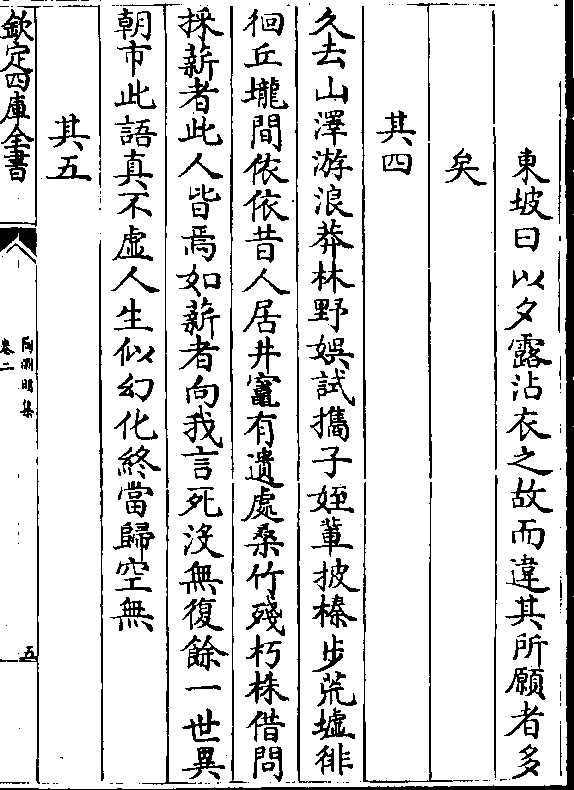 東坡曰以夕露沾衣之故而違其所願者多
矣
其四
久去山澤游浪莽林野娯試攜子姪軰披榛步荒墟徘
徊丘壠間依依昔人居井竈有遺處桑竹殘朽株借問
採薪者此人皆焉如薪者向我言死没無復餘一世異
朝市此語真不虛人生似幻化終當歸空無
其五
欽定四庫全書
陶淵明集
卷二
五